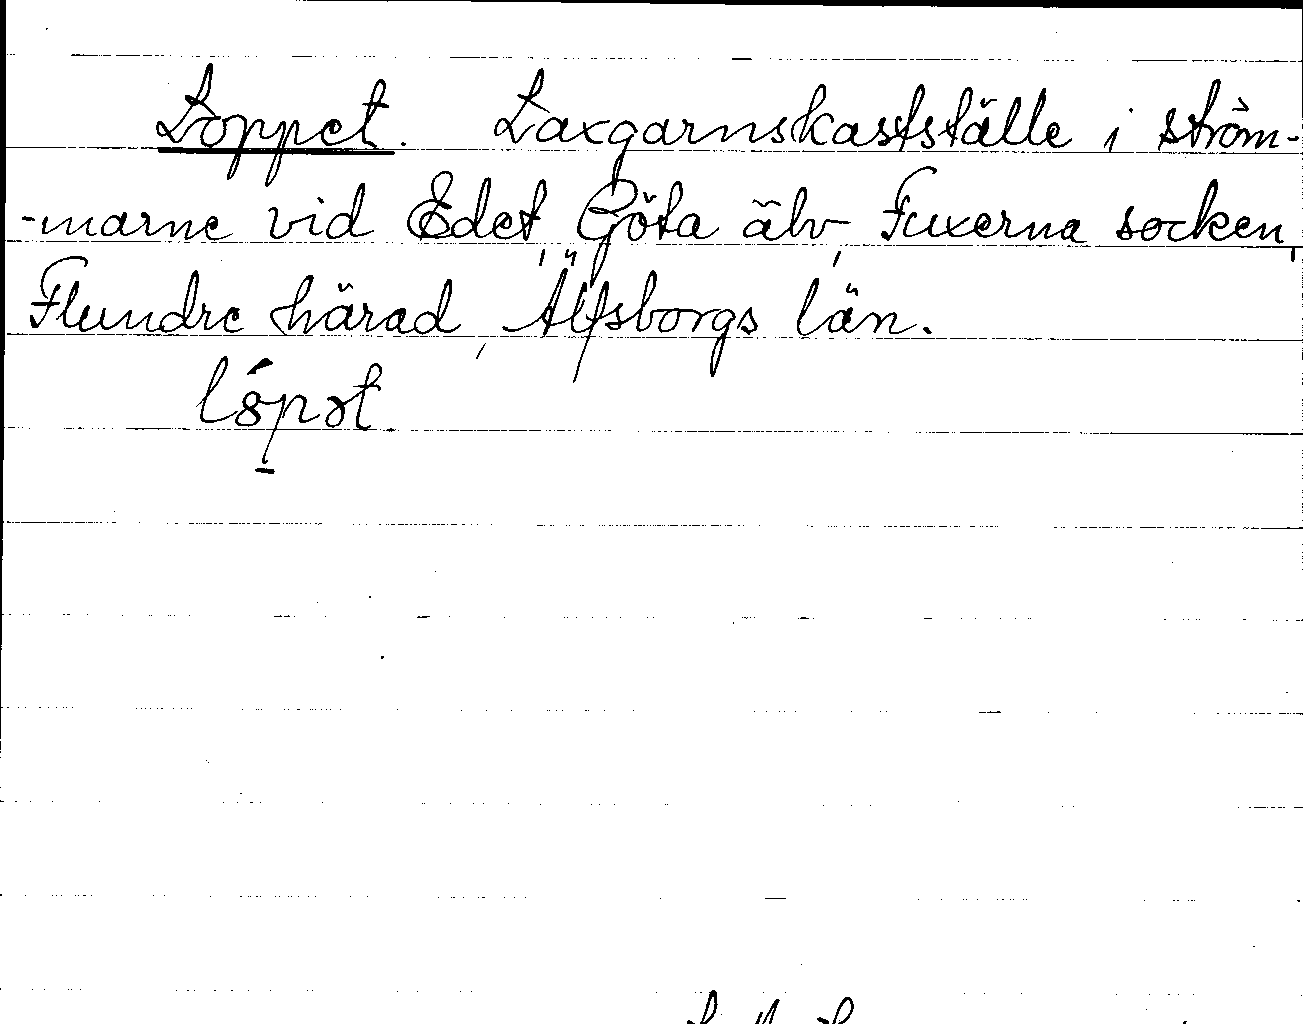 Loppet. Laxgarnskastställe i ström-
-marne vid Edet, Göta älv, Fuxerna socken,
Flundre härad, Älfsborgs län.